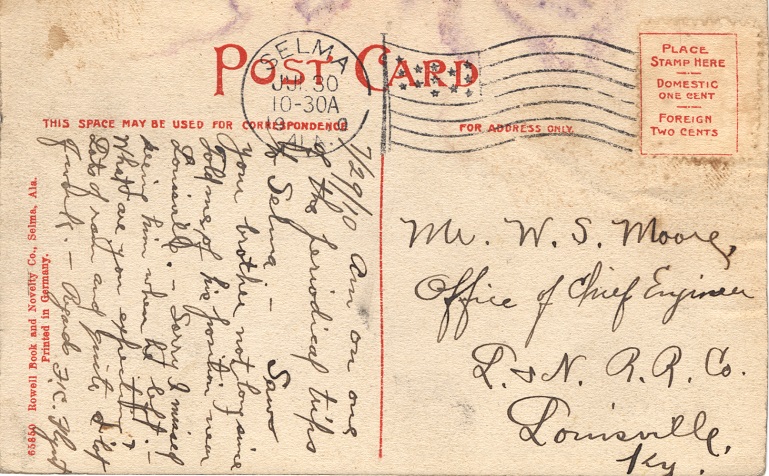 POST CARD
SELMA
JUL 30
10-30A
ALA.
THIS SPACE MAY BE USED FOR CORRESPONDENCE
FOR ADDRESS ONLY.
PLACE
STAMP HERE
DOMESTIC
ONE CENT
FOREIGN
TWO CENTS
7/29/10 Am on one
of the periodical trips
to Selma. — Saw
your brother not long since
told me of his position near
Louisville. — Sorry I missed
seeing him when he left. —
What are you
Lots of rain and quite a lot
Regards
Mr. W. S. Moore,
Office of Chief Engineer
L. & N. R. R. Co.
Louisville,
Ky.
65850 Rowell Book and Novelty Co., Selma, Ala.
Printed in Germany.